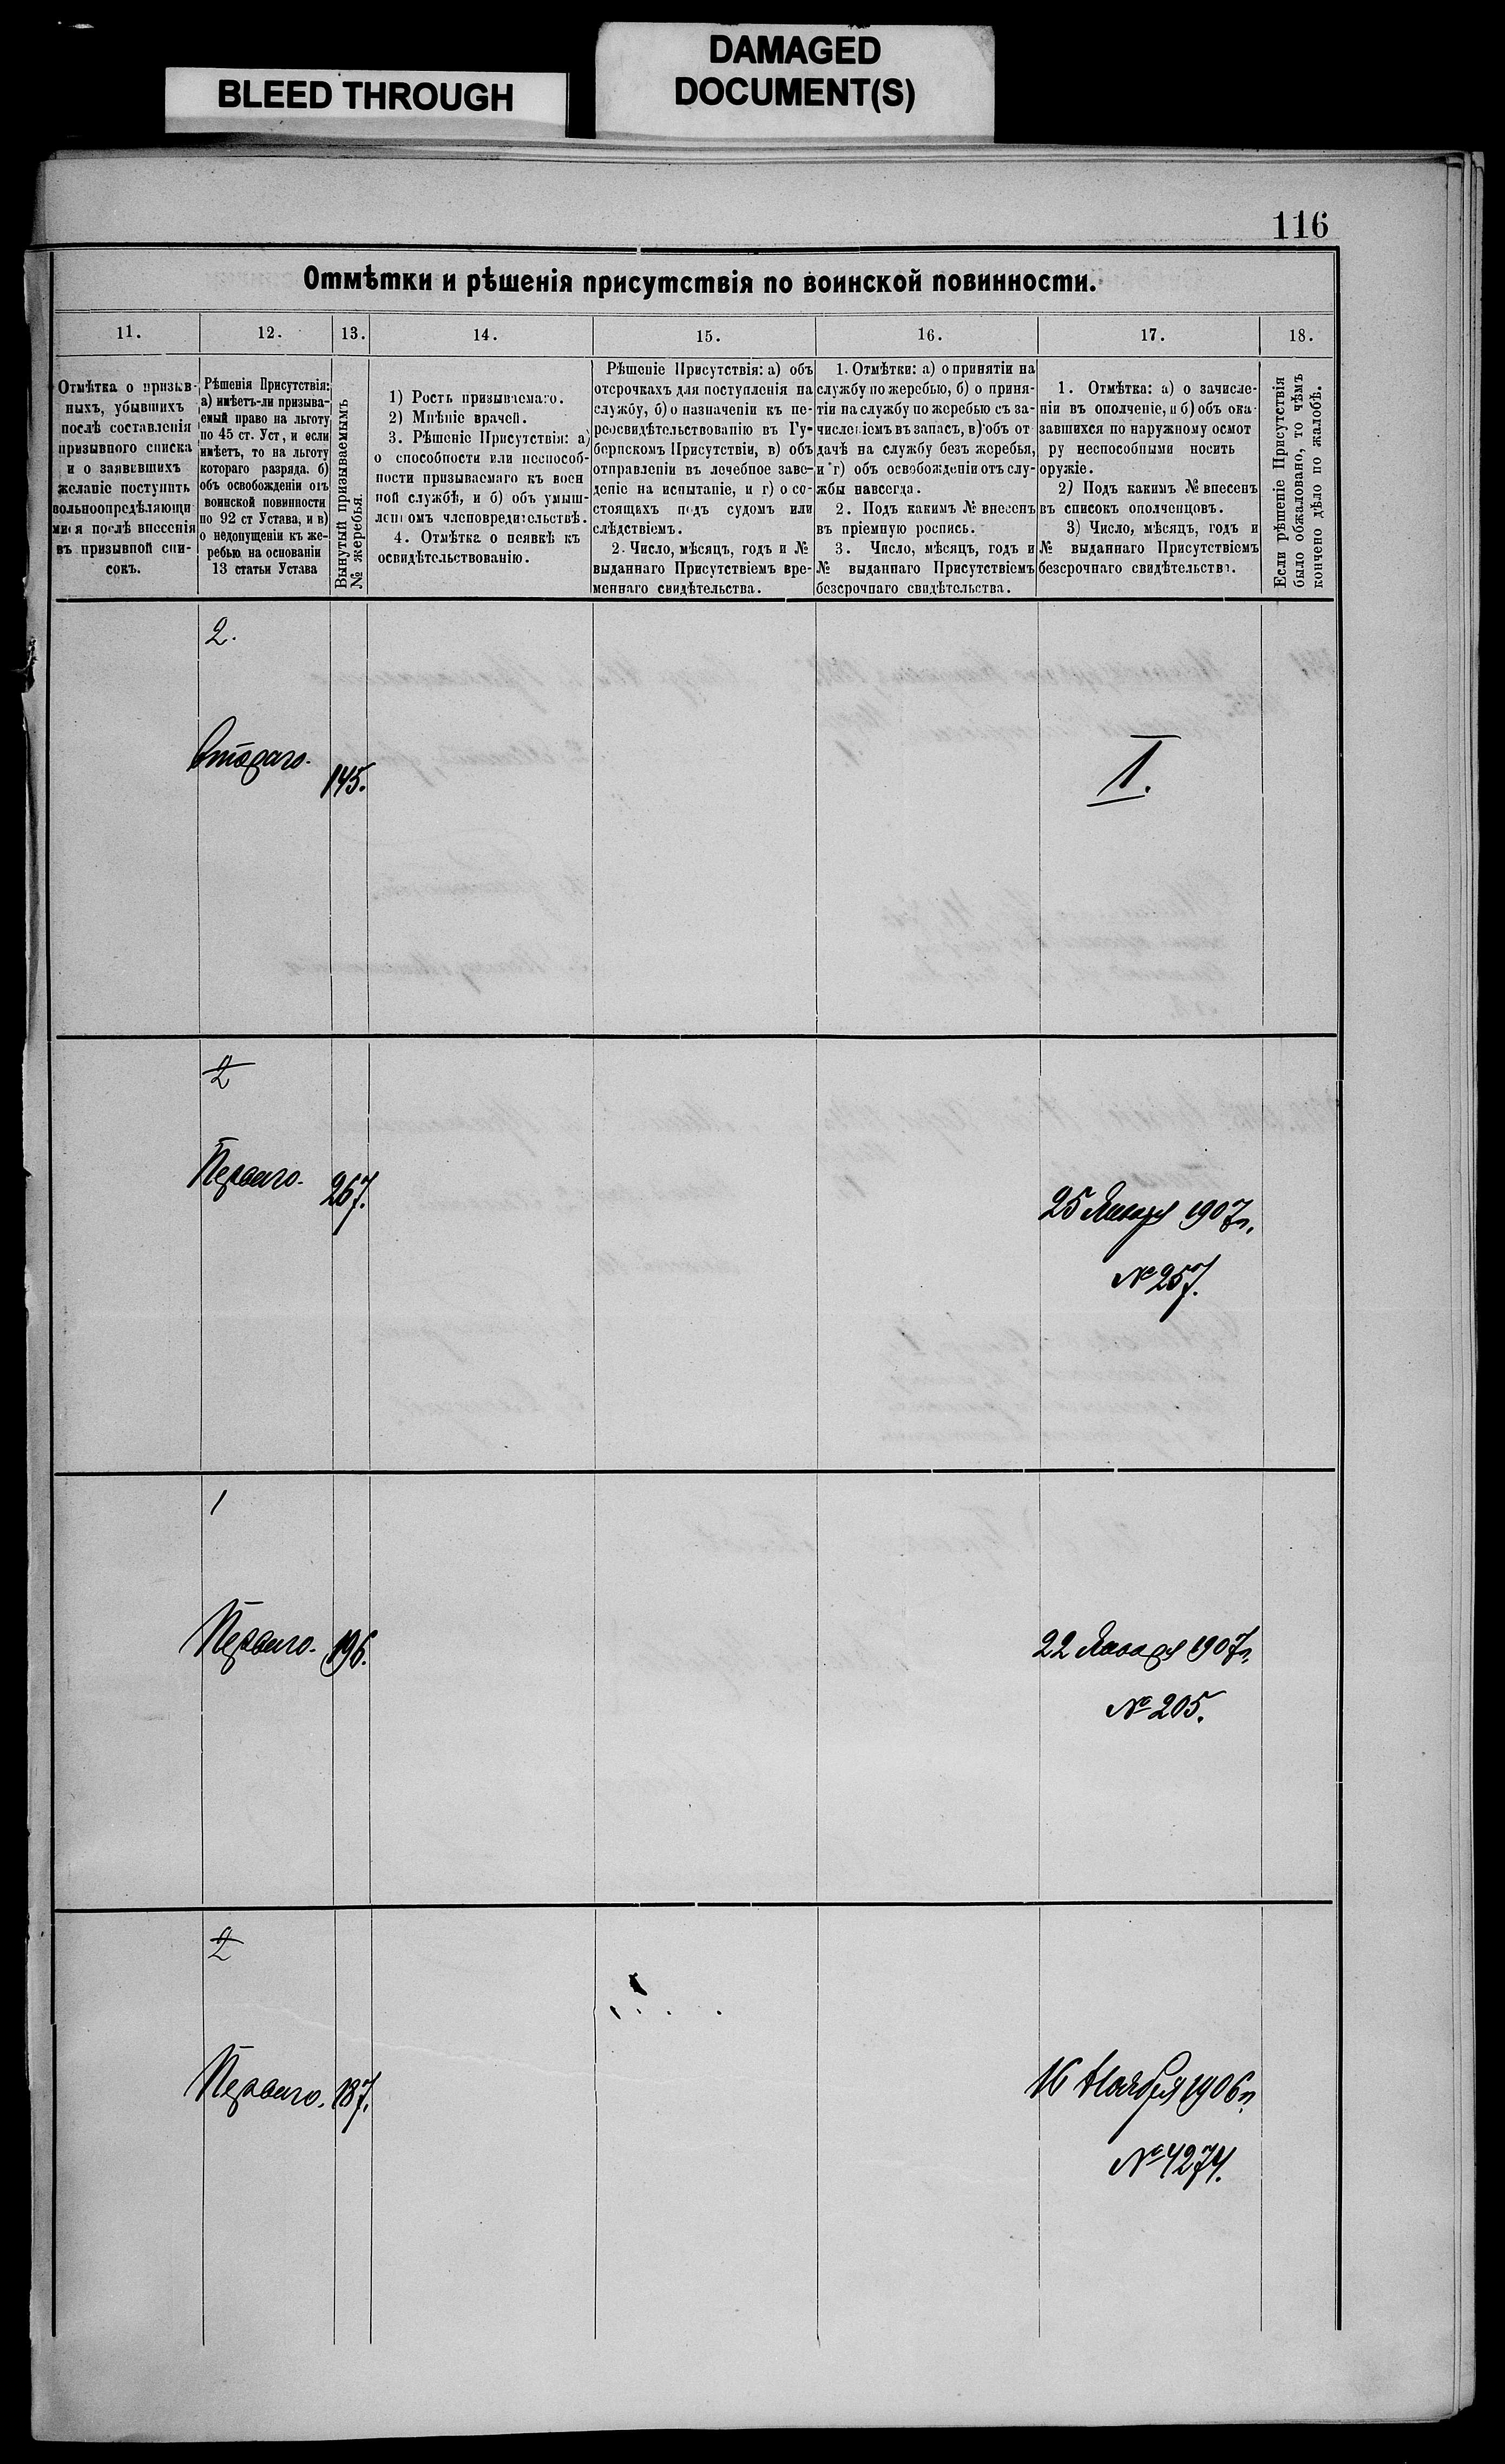 BLEED THROUGH
DAMAGED
DOCUMENT(S)
116
Отмѣтки и рѣшенія присутствія по воинской повинности.
11.
12.
13.
14.
15.
16.
17.
18.
Отмѣтка о призыв-
ныхъ, убывшихъ
послѣ составленія
призывного списка
и о заявившихъ
желаніе поступить
вольноопредѣляющи
мися послѣ внесенія
въ призывной спи-
сокъ.
Рѣшенія Присутствія:
а) имѣетъ-ли призыва-
емый право на льготу
по 45 ст. Уст, и если
имѣетъ, то на льготу
котораго разряда. б)
объ освобожденіи отъ
воинской повинности
по 92 ст Устава, и в)
о недопущеніи къ же-
ребью на основаніи
13 статьи Устава
Вынутый призываемымъ
№ жеребья.
1) Ростъ призываемаго.
2) Мнѣніе врачей.
3. Рѣшеніе Присутствія: а)
о способности или неспособ-
ности призываемаго къ воен
ной службѣ, и б) объ умыш-
ленномъ членовредительствѣ.
4. Отмѣтка о неявкѣ къ
освидѣтельствованію.
Рѣшеніе Присутствія: а) объ
отсрочкахъ для поступленія на
службу, б) о назначеніи къ пе-
реосвидѣтельствованію въ Гу-
бернскомъ Присутствіи, в) объ
отправленіи въ лечебное заве-
деніе на испытаніе, и г) о со-
стоящихъ подъ судомъ или
слѣдствіемъ.
2. Число, мѣсяцъ, годъ и №
выданнаго Присутствіемъ вре-
меннаго свидѣтельства.
1. Отмѣтки: а) о принятіи на
службу по жеребью, б) о приня-
тіи на службу по жеребью съ за-
численіемъ въ запасъ, в) объ от
дачѣ на службу безъ жеребья,
и г) объ освобожденіи отъ слу-
жбы навсегда.
2. Подъ какимъ № внесенъ
въ пріемную роспись.
3. Число, мѣсяцъ, годъ и
№ выданнаго Присутствіемъ
безсрочнаго свидѣтельства.
1. Отмѣтка: а) о зачисле-
ніи въ ополченіе, и б) объ ока
завшихся по наружному осмот
ру неспособными носить
оружіе.
2) Подъ какимъ № внесенъ
въ списокъ ополченцовъ.
3) Число, мѣсяцъ, годъ и
№ выданнаго Присутствіемъ
безсрочнаго свидѣтельства.
Если рѣшеніе Присутствія
было обжаловано, то чѣмъ
кончено дѣло по жалобѣ.
2.
Втораго.
145.
I.
2
Перваго.
267.
25 Января 1907 г.
№ 257.
1
Перваго.
196.
22 Января 1907 г.
№ 205.
2
Перваго.
187.
16 Ноября 1906 г.
№ 4274.